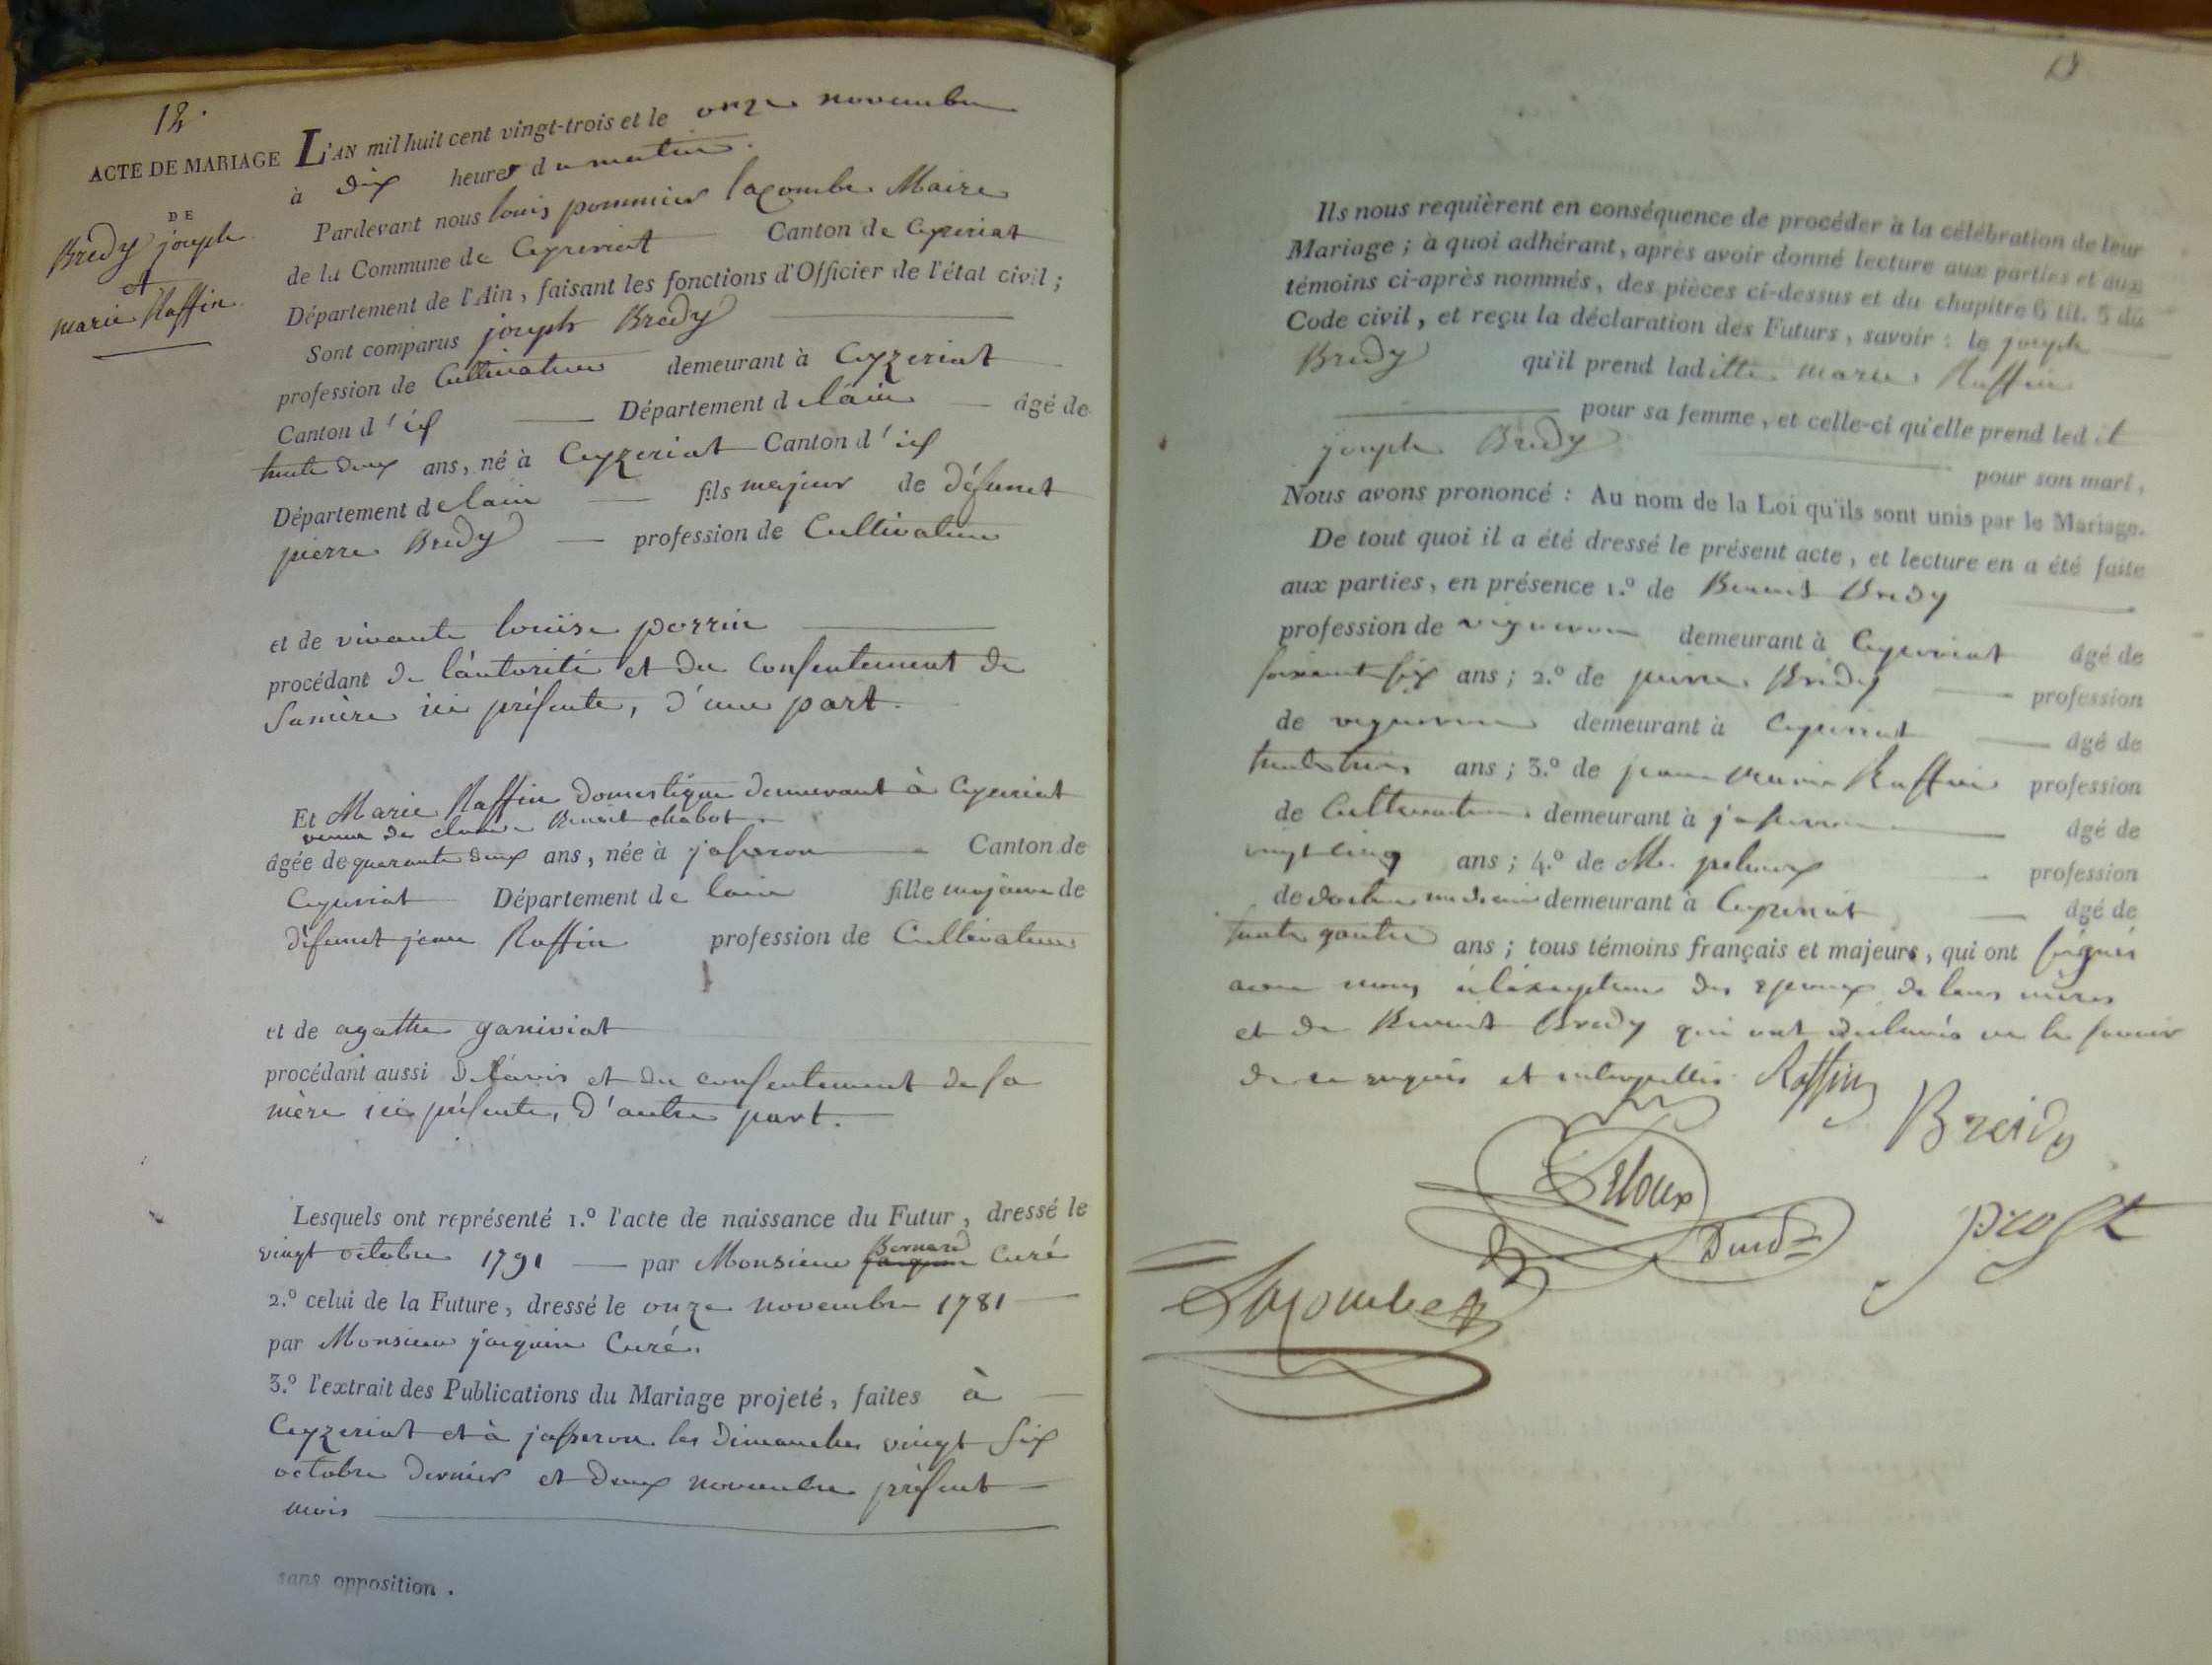 12.
ACTE DE MARIAGE
DE
Bredy joseph
et
marie Raffin
L'AN mil huit cent vingt-trois et le onze novembre
à dix heures du matin.
Pardevant nous louis pommier lacombe Maire
de la Commune de Ceyzeriat Canton de Ceyzeriat
Département de l'Ain, faisant les fonctions d'Officier de l'état civil ;
Sont comparus joseph Bredy
profession de Cultivateur demeurant à Ceyzeriat
Canton d'id Département de lain âgé de
trente deux ans, né à Ceyzeriat Canton d'id
Département de lain fils majeur de défunct
pierre Bredy profession de Cultivateur
et de vivante louise perrin
procédant de l'autorité et du consentement de
sa mère ici présente, d'une part.
Et Marie Raffin domestique demeurant à Ceyzeriat
veuve de Benoit chabot
âgée de quarante deux ans, née à jasseron Canton de
Ceyzeriat Département de lain fille majeure de
défunct jean Raffin profession de Cultivateur
et de agathe ganiviat
procédant aussi de l'avis et du consentement de sa
mère ici présente, d'autre part.
Lesquels ont représenté 1.º l'acte de naissance du Futur, dressé le
vingt octobre 1791 par Monsieur Bernard Curé
2.º celui de la Future, dressé le onze novembre 1781
par Monsieur jacquin Curé.
3.º l'extrait des Publications du Mariage projeté, faites à
Ceyzeriat et à jasseron les dimanches vingt six
octobre dernier et deux novembre présent
mois
sans opposition.
13
Ils nous requièrent en conséquence de procéder à la célébration de leur
Mariage ; à quoi adhérant, après avoir donné lecture aux parties et aux
témoins ci-après nommés, des pièces ci-dessus et du chapitre 6 tit. 5 du
Code civil, et reçu la déclaration des Futurs, savoir : le joseph
Bredy qu'il prend laditte marie Raffin
pour sa femme, et celle-ci qu'elle prend led it
joseph Bredy pour son mari,
Nous avons prononcé : Au nom de la Loi qu'ils sont unis par le Mariage.
De tout quoi il a été dressé le présent acte, et lecture en a été faite
aux parties, en présence 1.º de Benoit Bredy
profession de vigneron demeurant à Ceyzeriat âgé de
soixante six ans ; 2.º de pierre Bredy profession
de vigneron demeurant à Ceyzeriat âgé de
trente trois ans ; 3.º de jean marie Raffin profession
de Cultivateur demeurant à jasseron âgé de
vingt cinq ans ; 4.º de Mr. peloux profession
de docteur medecin demeurant à Ceyzeriat âgé de
trente quatre ans ; tous témoins français et majeurs, qui ont signés
avec nous à l'exception des epoux de leurs mères
et de Benoit Bredy qui ont déclarés ne le savoir
de ce requis et interpellés. Raffin
Breidy
Peloux
prost
Lacombe